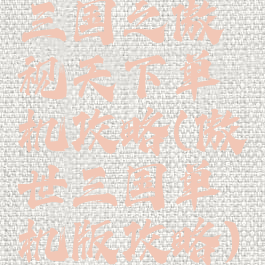 三国之傲
视天下单
机攻略(傲
世三国单
机版攻略)